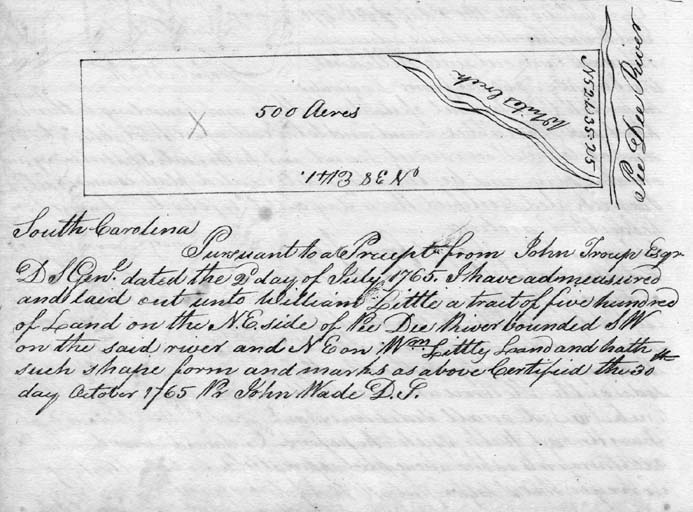 500 Acres
Whites Creek
Pee Dee River
South Carolina
Pursuant to a Precept from John Troup Esqr
D S Genl dated the 2d day of July 1765. I have admeasured
and laid out unto William Little a tract of five hundred
of Land on the N.E side of Pee Dee River bounded SW
on the said river and N E on Wm Littles Land and hath
such shape form and marks as above Certified the 30th
day October 1765 Pr John Wade D.S.